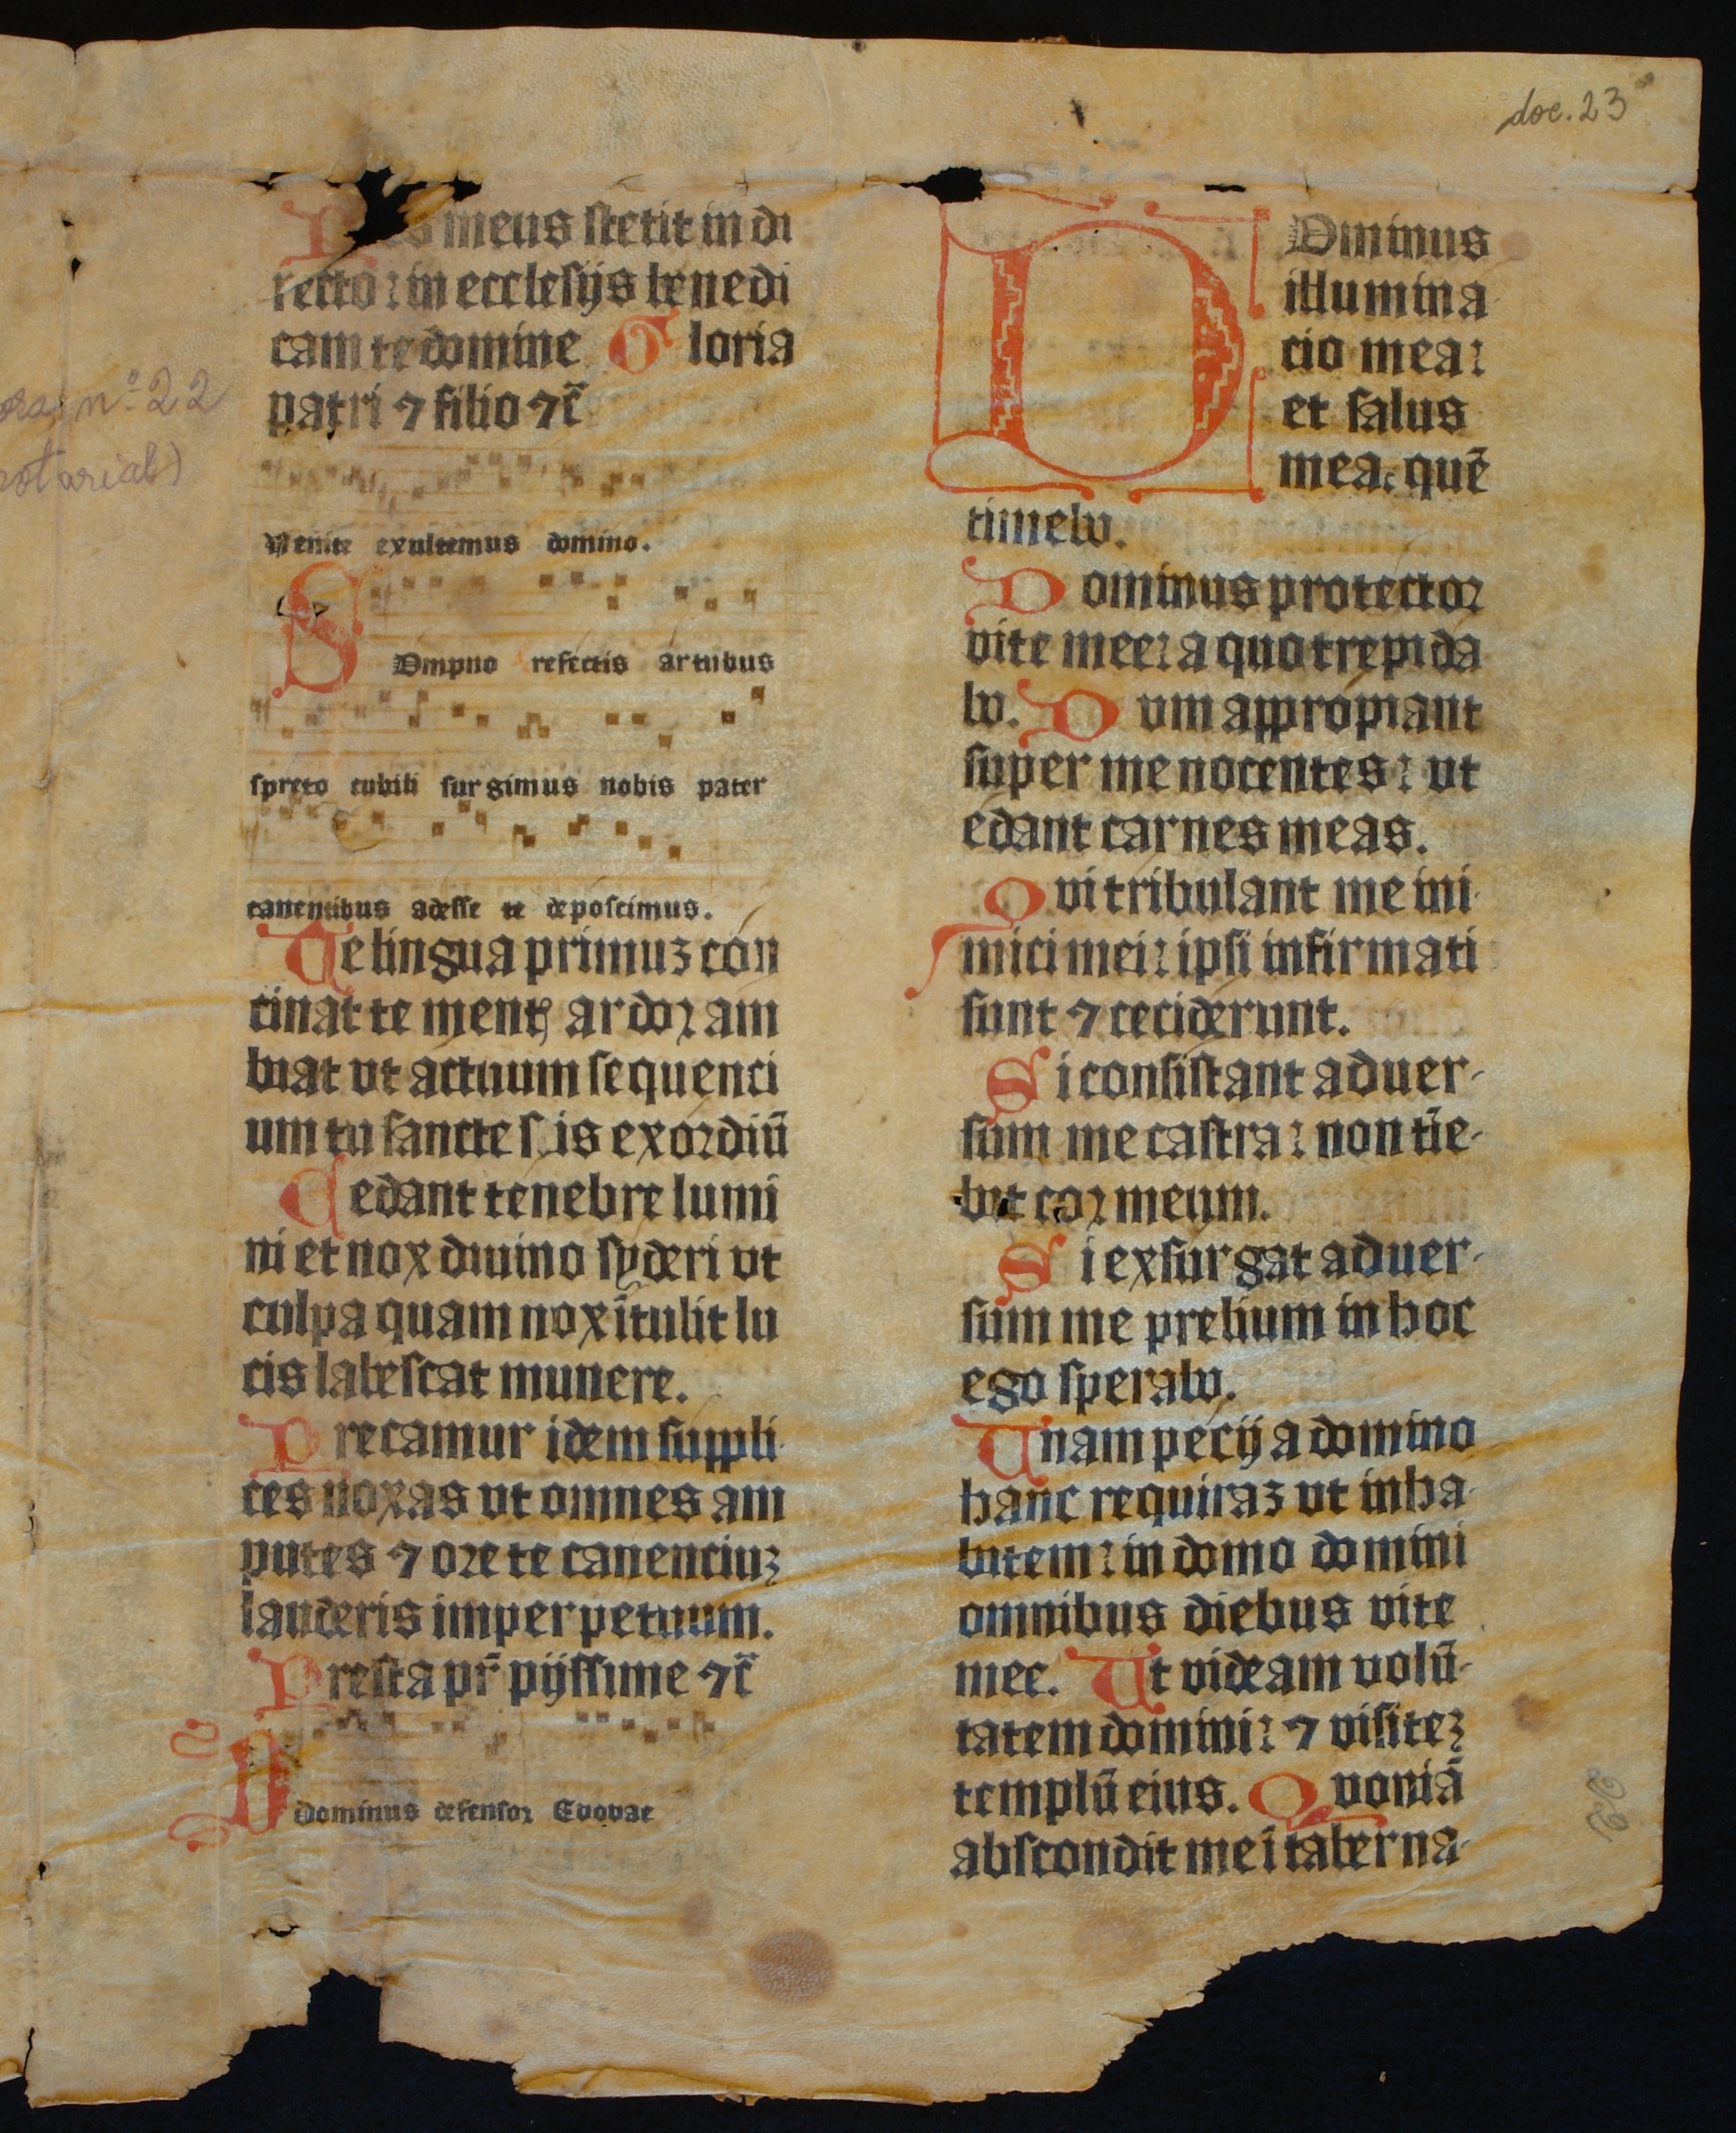 doc. 23
nº 22
notarial)
Pes meus stetit in di
recto: in ecclesijs benedi
cam te domine Gloria
patri ⁊ filio ⁊c̃
Venite exultemus domino.
SOmpno refectis artubus
spreto cubili surgimus nobis pater
canentibus adesse te deposcimus.
Te lingua primuz con
cinat te mentꝭ ardor am
biat ut actuum sequenci
um tu sancte sis exordiū
Cedant tenebre lumi
ni et nox diuino syderi ut
culpa quam nox ītulit lu
cis labescat munere.
Precamur idem suppli
ces noxas ut omnes am
putes ⁊ ore te canenciuz
lauderis imperpetuum.
Presta pr̃ pijssime ⁊c̃
Dominus defensor Euouae
DOminus
illumina
cio mea:
et salus
mea. quē
timebo.
Dominus protector
vite mee: a quo trepida
bo. Dum appropiant
super me nocentes: ut
edant carnes meas.
Qui tribulant me ini
mici mei: ipsi infirmati
sunt ⁊ ceciderunt.
Si consistant aduer
sum me castra: non tīe
bit cor meum.
Si exsurgat aduer
sum me prelium in hoc
ego sperabo.
Unam pecij a domino
hanc requiraz ut inha
bitem: in domo domini
omnibus diebus vite
mee. Ut videam uolū
tatem domini: ⁊ visitez
templū eius. Quoniā
abscondit me ī taberna